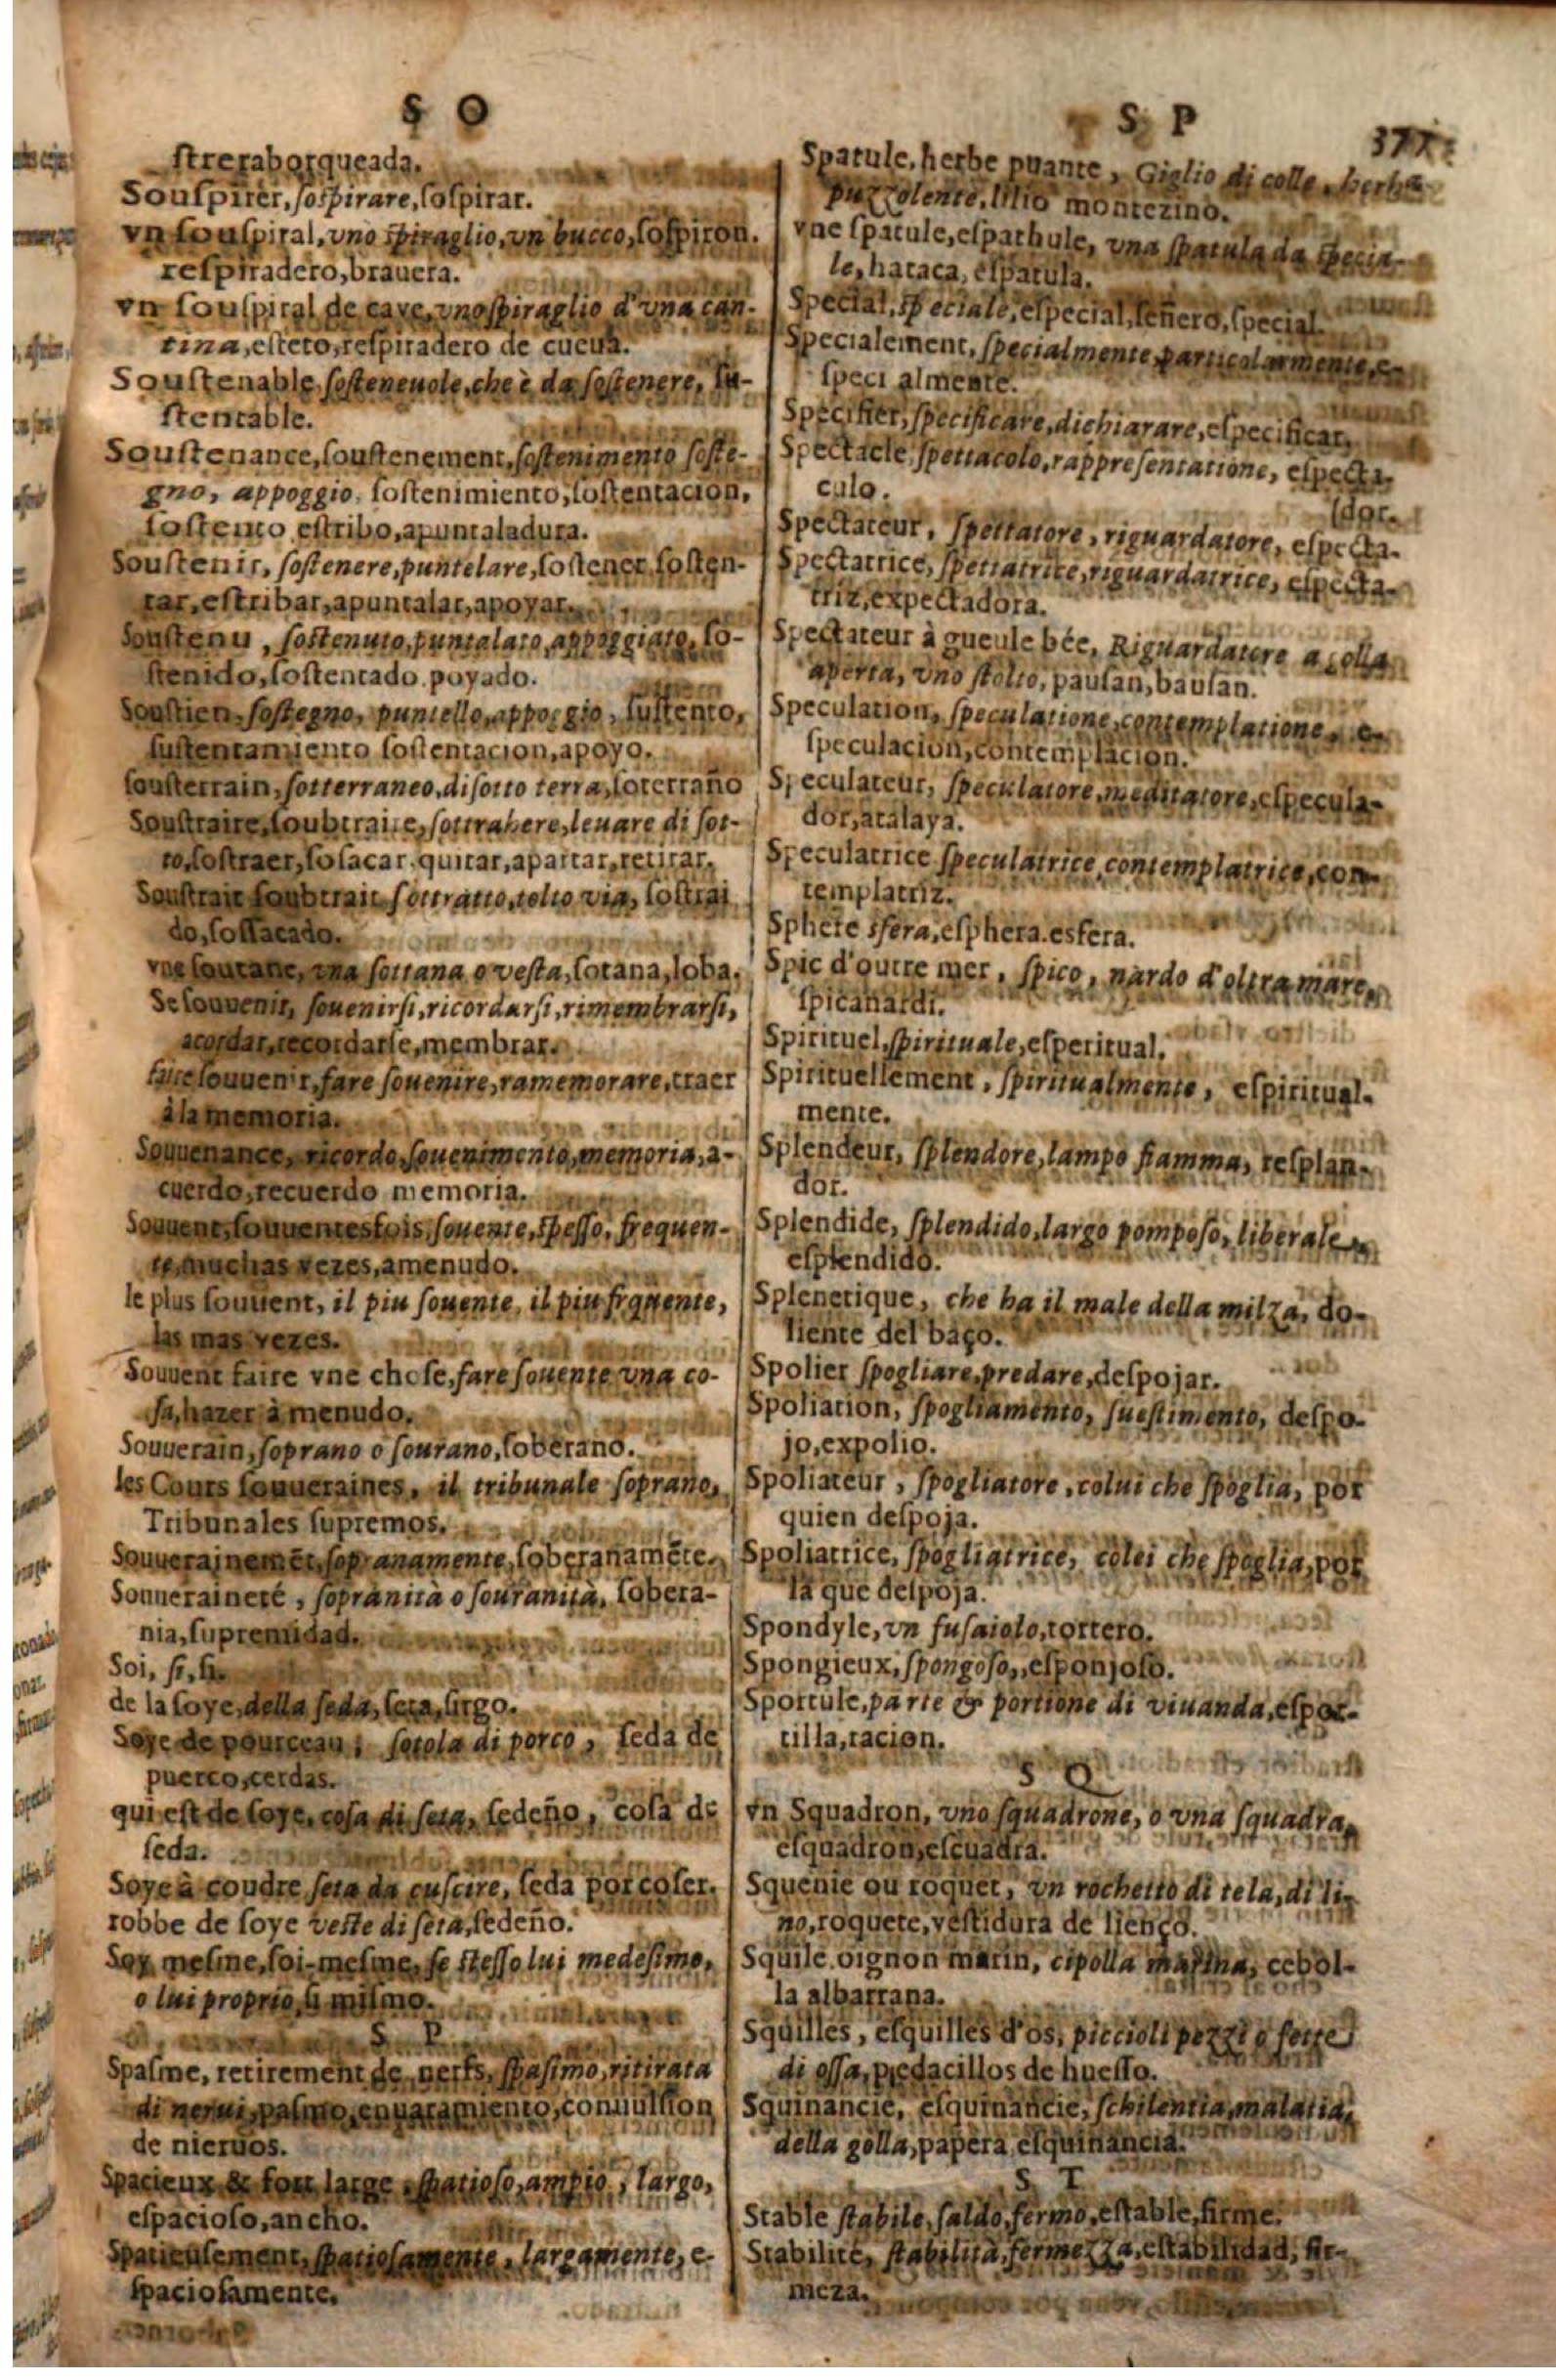 S O
ſtreraborqueada.
Souſpirer, ſoſpirare, ſoſpirar.
vn ſouſpiral, vno ſpiraglio, vn bucco, ſoſpiron.
reſpiradero, brauera.
vn ſouſpiral de cave, vno ſpiraglio d'vna can-
tina, eſteto, reſpiradero de cueua.
Souſtenable, ſosteneuole, che è da ſostenere, ſu-
ſtentable.
Souſtenance, ſouſtenement, ſostenimento ſoste-
gno, appoggio, ſoſtenimiento, ſoſtentacion,
ſoſtento eſtribo, apuntaladura.
Souſtenir, ſostenere, puntelare, ſoſtener, ſoſten-
tar, eſtribar, apuntalar, apoyar.
Souſtenu, ſostenuto, puntalato, appoggiato, ſo-
ſtenido, ſoſtentado. poyado.
Souſtien, ſostegno, puntello, appoggio, ſuſtento,
ſuſtentamiento ſoſtentacion, apoyo.
ſouſterrain, ſotterraneo, di ſotto terra, ſoterraño
Souſtraire, ſoubtraire, ſottrahere, leuare di ſot-
to, ſoſtraer, ſoſacar. quitar, apartar, retirar.
Souſtrait ſoubtrait ſottratto, tolto via, ſoſtrai
do, ſoſſacado.
vne ſoutane, vna ſottana o veſta, ſotana, loba.
Se ſouvenir, ſouenirſi, ricordarſi, rimembrarſi,
acordar, recordarſe, membrar.
faire ſouvenir, fare ſouenire, ramemorare, traer
à la memoria.
Souvenance, ricordo, ſouenimento, memoria, a-
cuerdo, recuerdo memoria.
Souvent, ſouventesfois, ſouente, ſpeſſo, frequen-
te, muchas vezes, amenudo.
le plus ſouvent, il piu ſouente, il piu frquente,
las mas vezes.
Souvent faire vne choſe, fare ſouente vna co-
ſa, hazer à menudo.
Souverain, ſoprano o ſourano, ſoberano.
les Cours ſouveraines, il tribunale ſoprano,
Tribunales ſupremos.
Souverainemẽt, ſopranamente, ſoberanamẽte.
Souveraineté, ſopranità o ſouranità, ſobera-
nia, ſupremidad.
Soi, ſi, ſi.
de la ſoye, della ſeda, ſeta, ſirgo.
Soye de pourceau, ſetola di porco, ſeda de
puerco, cerdas.
qui est de ſoye, coſa di ſeta, ſedeño, coſa de
ſeda.
Soye à coudre ſeta da cuſcire, ſeda por coſer.
robbe de ſoye veste di ſeta, ſedeño.
Soy meſme, ſoi-meſme, ſe steſſo lui medeſimo,
o lui proprio, ſi miſmo.
S P
Spaſme, retirement de nerfs, ſpaſimo, ritirata
di nerui, paſmo, envaramiento, convulſion
de nieruos.
Spacieux & fort large, ſpatioſo, ampio, largo,
eſpacioſo, ancho.
Spatieuſement, ſpatioſamente, largamente, e-
ſpacioſamente.
S P
377
Spatule, herbe puante, Giglio di colle, herba
puzzolente, lilio montezino.
vne ſpatule, eſpathule, vna ſpatula da ſpecia-
le, hataca, eſpatula.
Special, ſpeciale, eſpecial, ſeñero, ſpecial.
Specialement, ſpecialmente, particolarmente, e-
ſpeci almente.
Specifier, ſpecificare, dichiarare, eſpecificar,
Spectacle, ſpettacolo, rappreſentatione, eſpecta-
culo.
(dor.
Spectateur, ſpettatore, riguardatore, eſpecta-
Spectatrice, ſpettatrice, riguardatrice, eſpecta-
triz, expectadora.
Spectateur à gueule bée, Riguardatore a golla
aperta, vno ſtolto, pauſan, bauſan.
Speculation, ſpeculatione, contemplatione, e-
ſpeculacion, contemplacion.
Speculateur, ſpeculatore, meditatore, eſpecula-
dor, atalaya.
Speculatrice ſpeculatrice, contemplatrice, con-
templatriz.
Sphere sfera, eſphera. esfera.
Spic d'outre mer, ſpico, nardo d'oltra mare,
ſpicanardi.
Spirituel, ſpirituale, eſperitual.
Spirituellement, ſpiritualmente, eſpiritual-
mente.
Splendeur, ſplendore, lampo fiamma, reſplan-
dor.
Splendide, ſplendido, largo pompoſo, liberale,
eſplendido.
Splenetique, che ha il male della milza, do-
liente del baço.
Spolier ſpogliare, predare, deſpojar.
Spoliation, ſpogliamento, ſuestimento, deſpo-
jo, expolio.
Spoliateur, ſpogliatore, colui che ſpoglia, por
quien deſpoja.
Spoliatrice, ſpogliatrice, colei che ſpoglia, por
la que deſpoja.
Spondyle, vn fuſaiolo, tortero.
Spongieux, ſpongoſo,, eſponjoſo.
Sportule, parte & portione di viuanda, eſpor-
tilla, racion.
S Q
vn Squadron, vno ſquadrone, o vna ſquadra,
eſquadron, eſcuadra.
Squenie ou roquet, vn rochetto di tela, di li-
no, roquete, veſtidura de lienço.
Squile. oignon marin, cipolla marina, cebol-
la albarrana.
Squilles, eſquilles d'os, piccioli pezzi o fette
di oſſa, piedacillos de hueſſo.
Squinancie, eſquinancie, ſchilentia, malatia,
della golla, papera eſquinancia.
S T
Stable ſtabile, ſaldo, fermo, eſtable, firme.
Stabilité, ſtabilità, fermezza, eſtabilidad, fir-
meza.